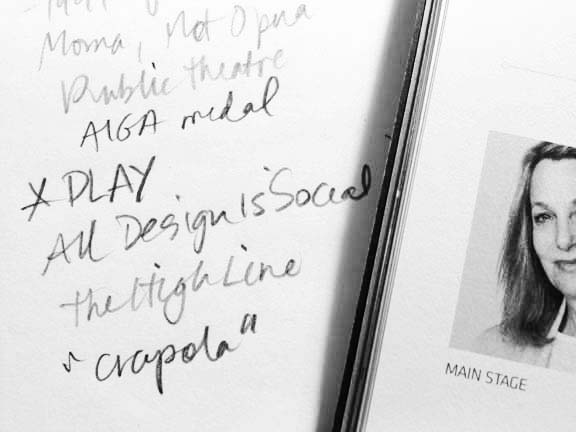 Moma, Not Opera
Public theatre
AIGA medal
* PLAY
All Design is "Social
the High Line
"crapola"
MAIN STAGE